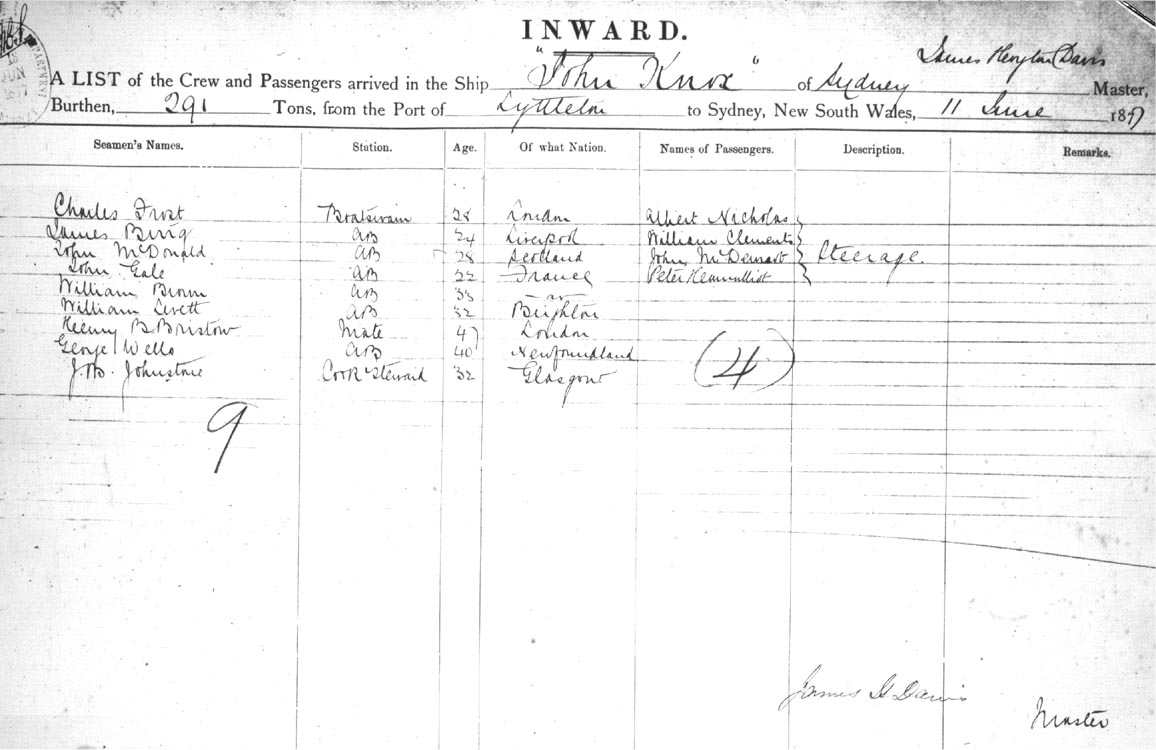 INWARD.
A LIST of the Crew and Passengers arrived in the Ship "John Knox" of Sydney James Davis Master,
Burthen, 291 Tons, from the Port of Lyttleton to Sydney, New South Wales, 11 June 18
Seamen's Names. Station. Age. Of what Nation. Names of Passengers. Description. Remarks.
Charles Frost Boatswain 28 London Albert Nicholas
James AB 24 Liverpool William Clements
John McDonald AB 28 Scotland John Steerage
John Gale AB 22 France Peter
William Brown AB 33
William Levett AB 32 Brighton
Henry B Bristow Mate 47 London
George Wells AB 40 Newfoundland (4)
J. Johnstone Cook & Steward 32 Glasgow
9
James H Davis
Master